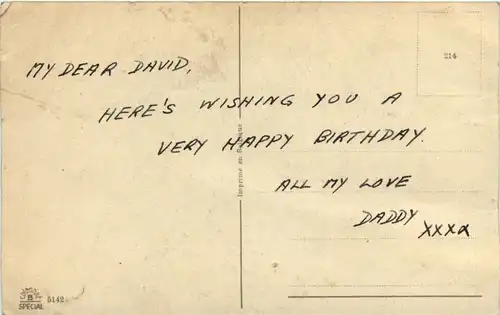 214
MY DEAR DAVID,
HERE'S WISHING YOU A
VERY HAPPY BIRTHDAY.
ALL MY LOVE
DADDY XXXX
Imprimé en Belgique
B
SPECIAL 5142